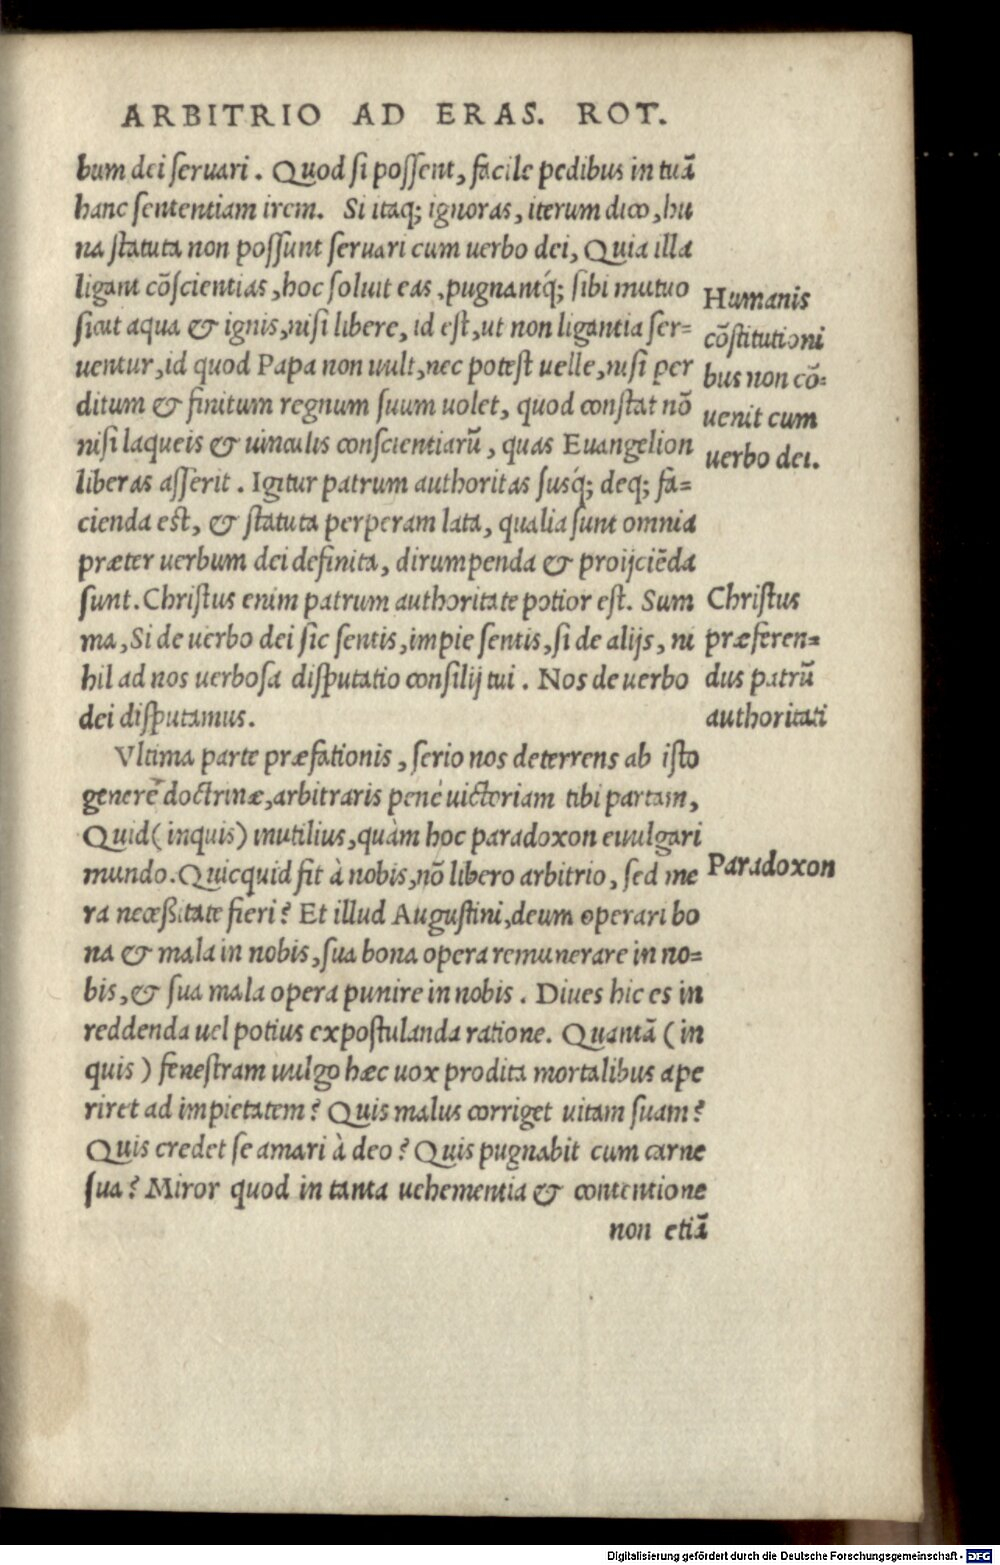 ARBITRIO AD ERAS. ROT.
bum dei ſeruari. Quod ſi poſſent, facile pedibus in tuā
hanc ſententiam irem. Si itaq; ignoras, iterum dico, hu
na ſtatuta non poſſunt ſeruari cum uerbo dei, Quia illa
ligant cōſcientias, hoc ſoluit eas, pugnantq́; ſibi mutuo
ſicut aqua & ignis, niſi libere, id eſt, ut non ligantia ſer=
uentur, id quod Papa non uult, nec poteſt uelle, niſi per
ditum & finitum regnum ſuum uolet, quod conſtat nō
niſi laqueis & uinculis conſcientiarū, quas Euangelion
liberas aſſerit. Igitur patrum authoritas ſusq́; deq; fa=
cienda eſt, & ſtatuta perperam lata, qualia ſunt omnia
præter uerbum dei definita, dirumpenda & proijciēda
ſunt. Chriſtus enim patrum authoritate potior eſt. Sum
ma, Si de uerbo dei ſic ſentis, impie ſentis, ſi de alijs, ni
hil ad nos uerboſa diſputatio conſilij tui. Nos de uerbo
dei diſputamus.
Humanis
cōſtitutioni
bus non cō=
uenit cum
uerbo dei.
Chriſtus
præferen=
dus patrū
authoritati
Vltima parte præfationis, ſerio nos deterrens ab iſto
genere doctrinæ, arbitraris penè uictoriam tibi partam,
Quid (inquis) inutilius, quàm hoc paradoxon euulgari
mundo. Quicquid fit à nobis, nō libero arbitrio, ſed me
ra neceßitate fieri? Et illud Auguſtini, deum operari bo
na & mala in nobis, ſua bona opera remunerare in no=
bis, & ſua mala opera punire in nobis. Diues hic es in
reddenda uel potius expoſtulanda ratione. Quantā (in
quis) feneſtram uulgo hæc uox prodita mortalibus ape
riret ad impietatem? Quis malus corriget uitam ſuam?
Quis credet ſe amari à deo? Quis pugnabit cum carne
ſua? Miror quod in tanta uehementia & contentione
non etiā
Paradoxon
Digitalisierung gefördert durch die Deutsche Forschungsgemeinschaft - DFG